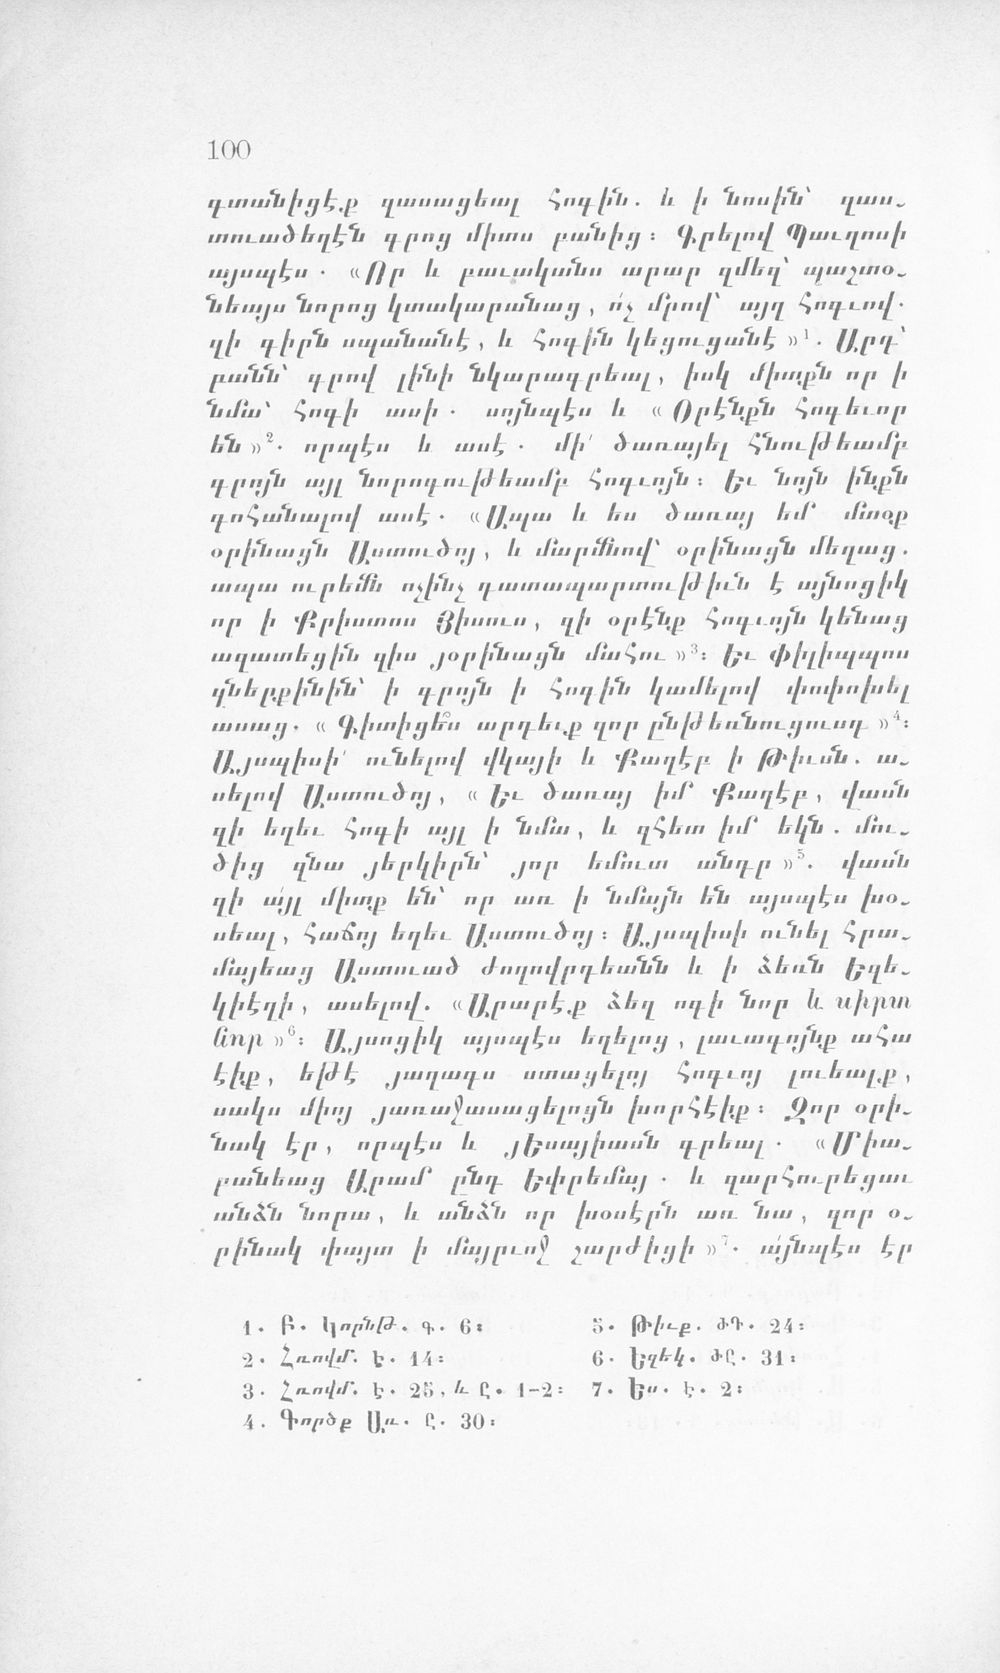 100
գտանիցէք զասացեալ Հոգին. և ի նոսին՝ զաս֊
տուածեղէն գրոց միտս բանից։ Գրելով Պաւղոսի
այսպէս. «Որ և բաւականս արար զմեզ՝ պաշտօ֊
նեայս նորոց կտակարանաց, ո՛չ մրով՝ այղ Հոգւով.
զի գիրն սպանանէ, և Հոգին կեցուցանէ»1. Արդ՝
բանն՝ գրով լինի նկարագրեալ, իսկ միտքն որ ի
նմա՝ Հոգի ասի. սոյնպէս և «Օրէնքն Հոգեւոր
են»2. որպէս և ասէ. մի՛ ծառայել Հնութեամբ
գրոյն այլ նորոգութեամբ Հոգւոյն։ Եւ նոյն ինքն
գոհանալով ասէ. «Ապա և ես ծառայ եմ մտօք
օրինացն Աստուծոյ, և մարմնով՝ օրինացն մեղաց.
ապա ուրեմն ոչինչ դատապարտութիւն է այնոցիկ
որ ի Քրիստոս Յիսուս, զի օրէնք Հոգւոյն կենաց
ազատեցին զիս յօրինացն մահու»3։ Եւ Փիլիպպոս
զներքինին՝ ի գրոյն ի Հոգին կամելով փոփոխել
ասաց. «Գիտիցե՞ս արդեւք զոր ընթեռնուցուսդ»4։
Այսպիսի՛ ունելով վկայի և Քաղէբ ի Թիւսն. ա֊
սելով Աստուծոյ, «Եւ ծառայ իմ Քաղէբ, վասն
զի եղեւ Հոգի այլ ի նմա, և զհետ իմ եկն. մու֊
ծից զնա յերկիրն՝ յոր եմուտ անդր»5. վասն
զի ա՛յլ միտք են՝ որ առ ի նմայն են այսպէս խօ֊
սեալ, հաճոյ եղեւ Աստուծոյ։ Այսպիսի ունել հրա֊
մայեաց Աստուած ժողովրդեանն և ի ձեռն Եզե֊
կիէղի, ասելով. «Արարէք ձեզ ոգի նոր և սիրտ
նոր»6։ Այսոցիկ այսպէս եղելոց, լաւագոյնք ահա
էիք, եթէ յաղագս ստացելոյ Հոգւոյ լուեալք,
սակս միոյ յառաջասացելոյն խորհէիք։ Զոր օրի֊
նակ էր, որպէս և յԵսայիասն գրեալ. «Միա֊
բանեաց Արամ ընդ Եփրեմայ. և զարհուրեցաւ
անձն նորա, և անձն որ խօսէրն առ նա, զոր օ֊
րինակ փայտ ի մայրւոջ շարժիցի»7. այնպէս էր
1. Բ. Կորնթ. գ. 6։
2. Հռովմ. Է. 14։
3. Հռովմ. է. 25, և ը. 1-2։
4. Գործք Առ. ը. 30։
5. Թիւք. ԺԴ. 24։
6. Եզեկ. ԺԸ. 31։
7. Ես. է. 2։